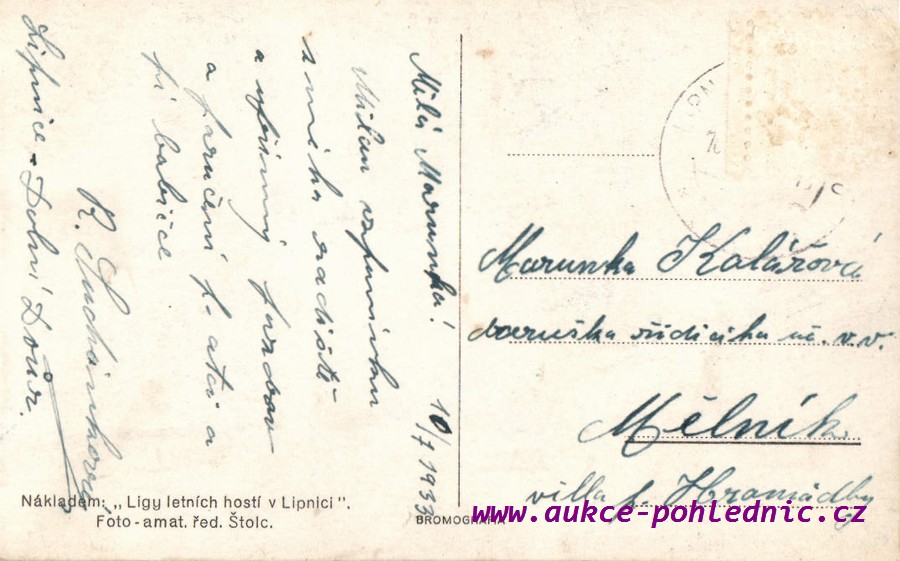 Milá Marunko! 10/7 1933
Milou vzpomínku
s mého sadiště
a upřímný pozdrav
a poručení p. otci a
pí babičce
R. Suchánková
Lipnice - Dolní Dvůr.
Marunka Kolářová
vnučka řídícího uč. v.v.
Mělník
villa p. Hromádky
Nákladem: „Ligy letních hostí v Lipnici".
Foto-amat. řed. Štolc.
BROMOGRAFIA
www.aukce-pohlednic.cz